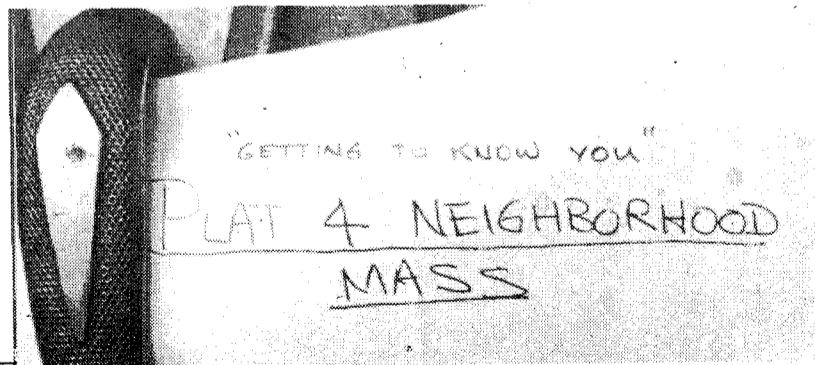 "GETTING TO KNOW YOU"
PLAT 4 NEIGHBORHOOD
MASS